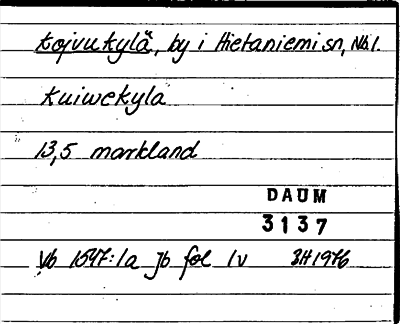 Koivukylä, by i Hietaniemi sn, Nb.l.
Kuiwekyla
13,5 markland
DAUM
3137
Vb 1547:1a Jb fol 1v BH 1976